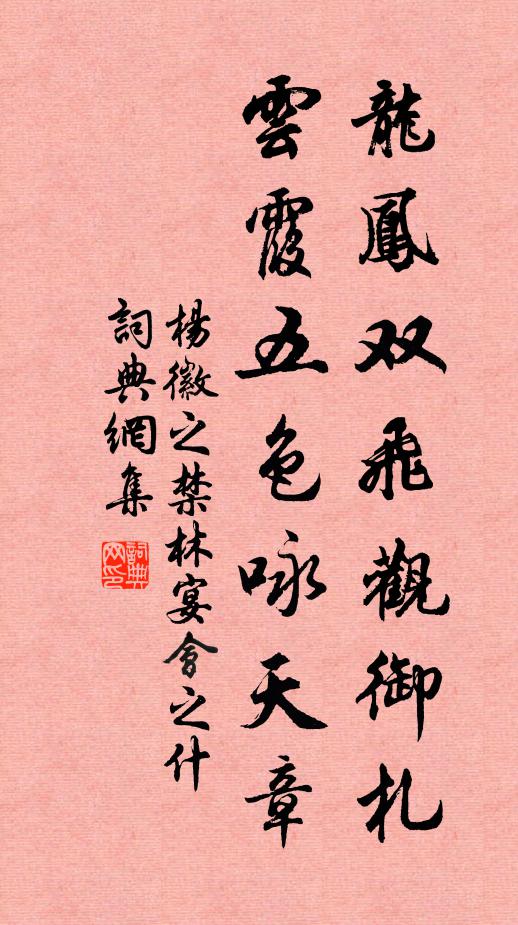 龍鳳双飛觀御札
雲霞五色咏天章
楊徽之禁林宴會之什
詞典網集
詞典网印